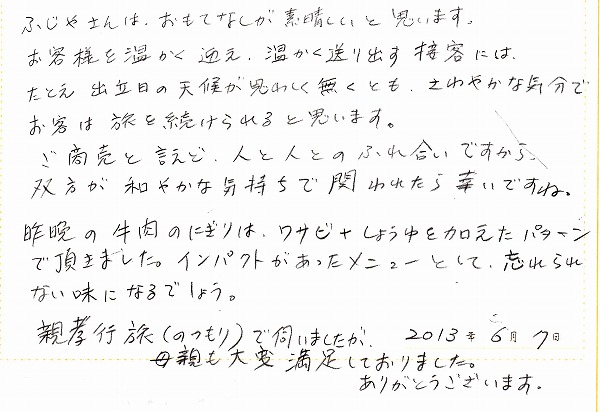 ふじやさんは、おもてなしが素晴しいと思います。
お客様を温かく迎え、温かく送り出す接客には、
たとえ出立日の天候が思わしく無くとも、さわやかな気分で
お客は旅を続けられると思います。
ご商売と言えど、人と人とのふれ合いですから、
双方が和やかな気持ちで関われたら幸いですね。
昨晩の牛肉のにぎりは、ワサビ+しょうゆを加えたパターン
で頂きました。インパクトがあったメニューとして、忘れられ
ない味になるでしょう。
親孝行旅(のつもり)で伺いましたが、 2013年6月7日
母親も大変満足しておりました。
ありがとうございます。